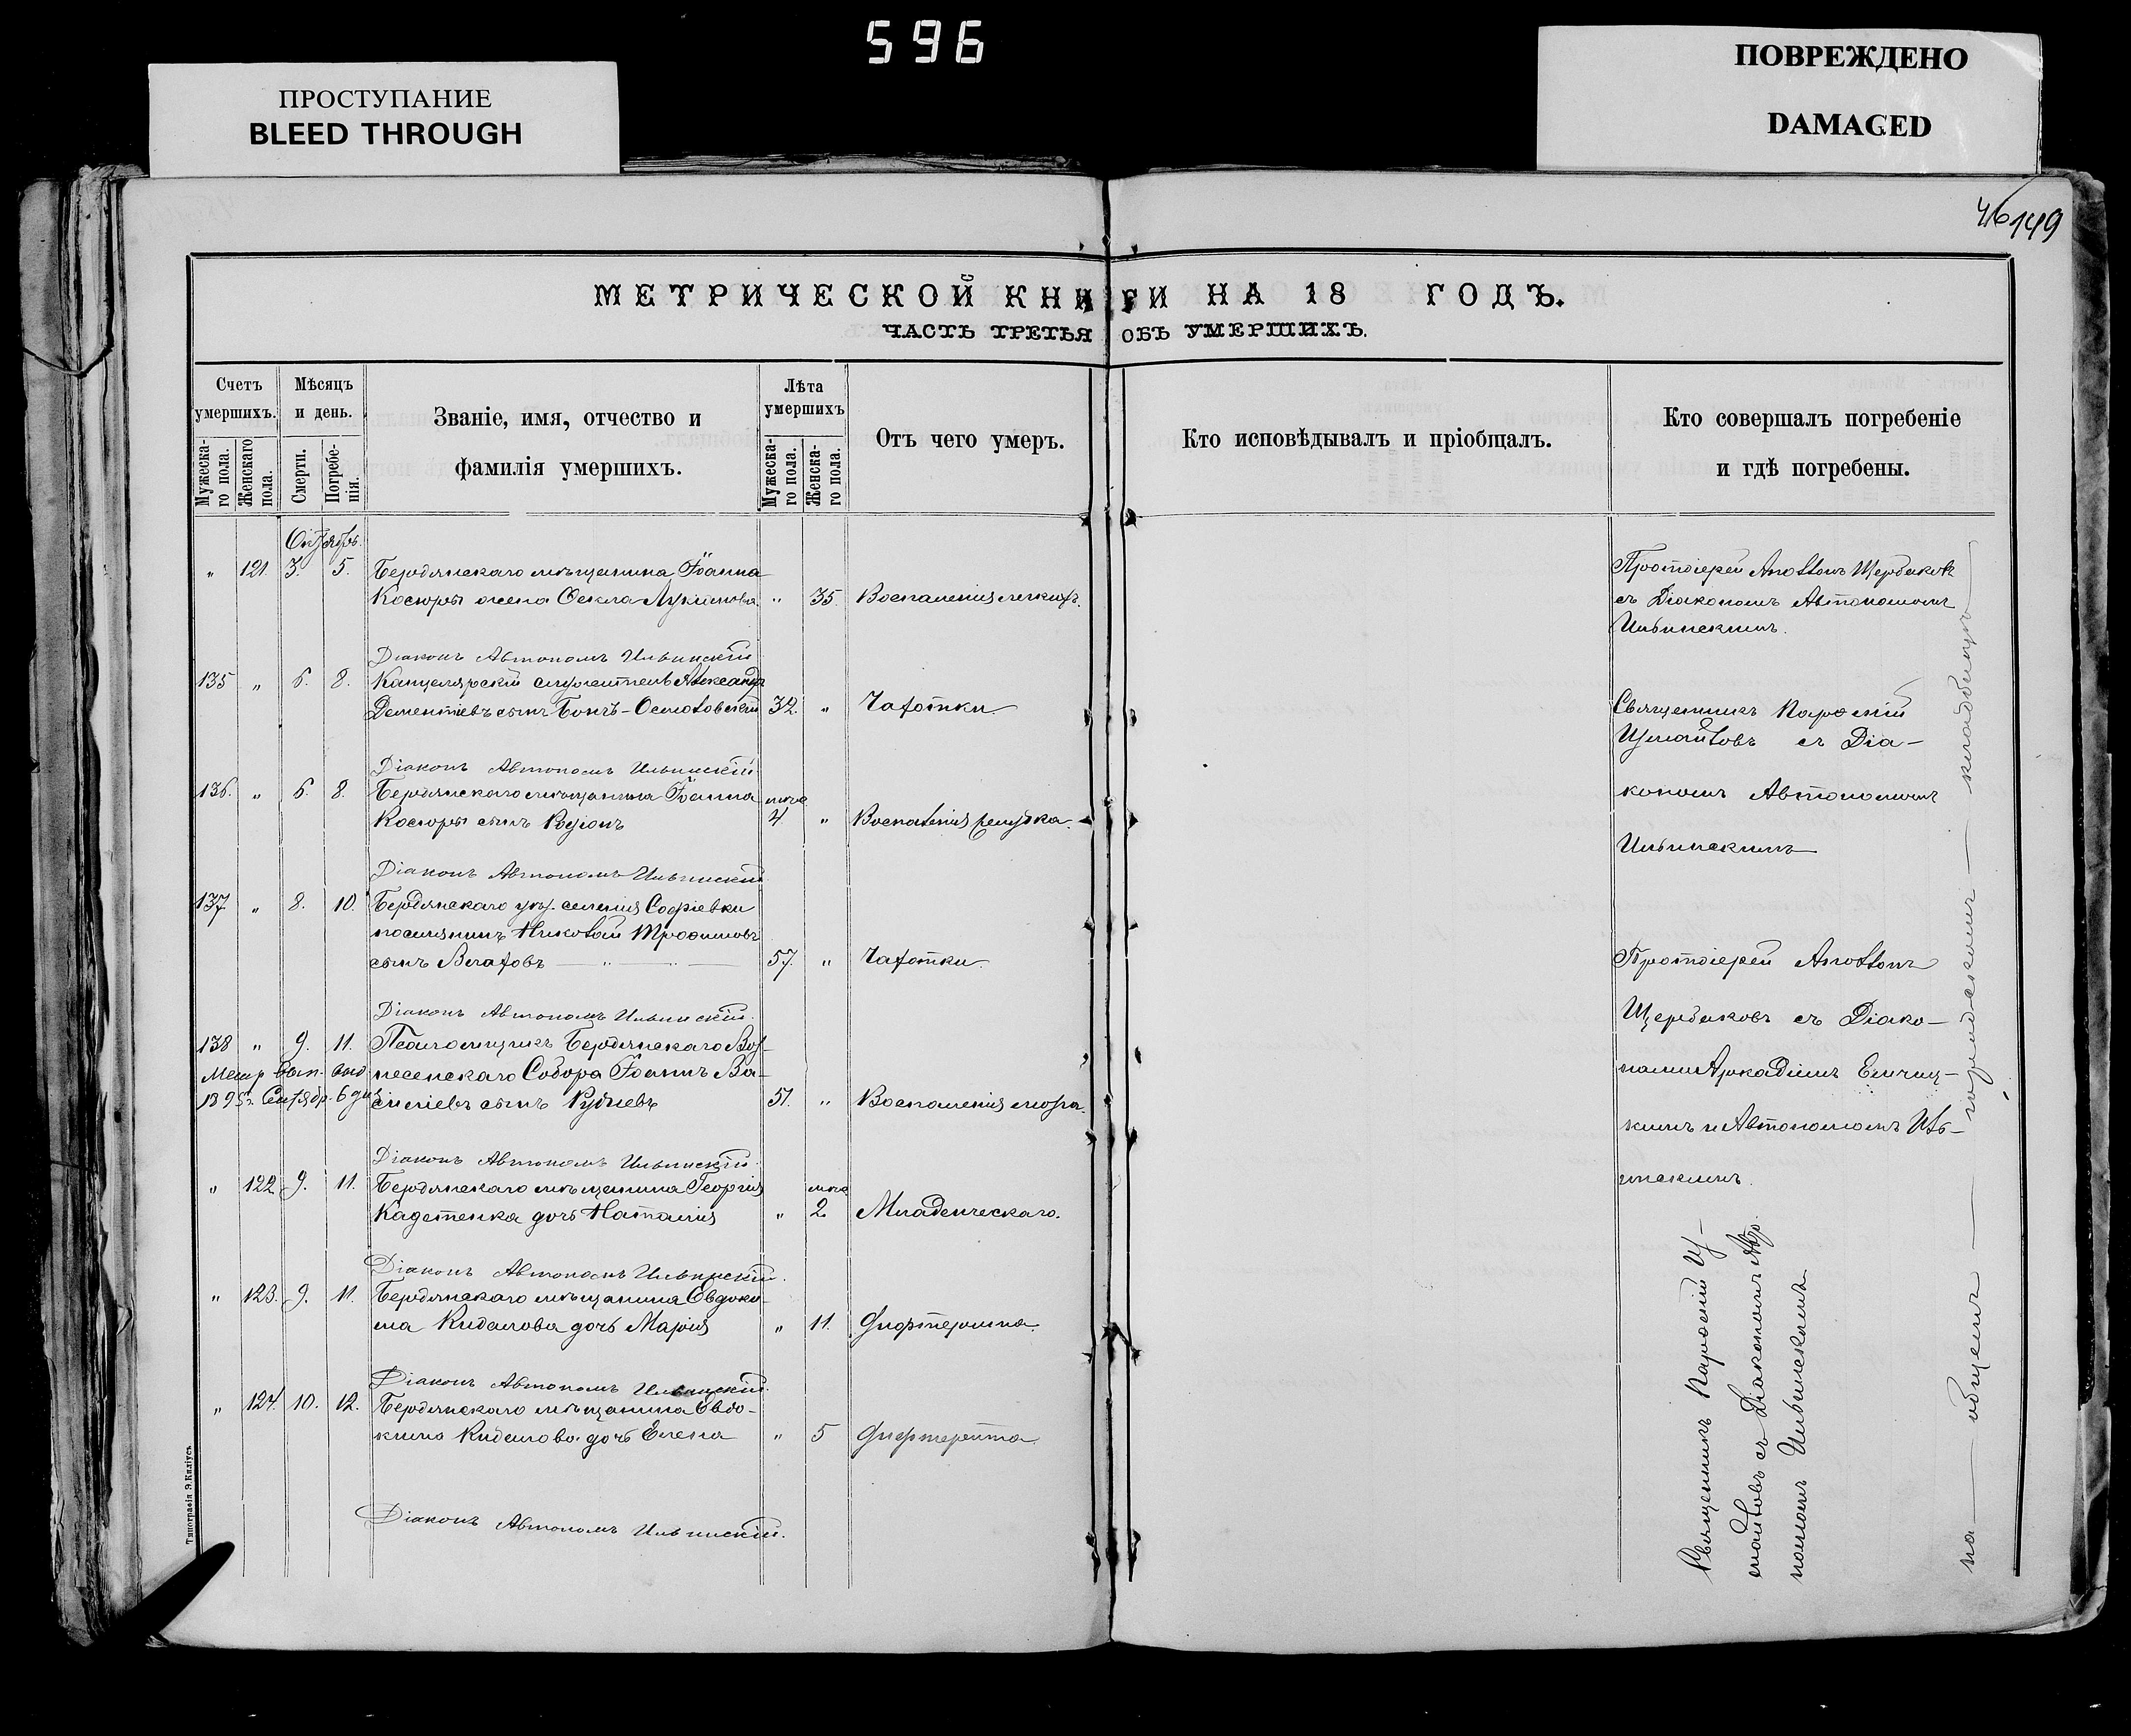 596
ПРОСТУПАНИЕ
BLEED THROUGH
ПОВРЕЖДЕНО
DAMAGED
46 149
МЕТРИЧЕСКОЙ КНИГИ НА 18 ГОДЪ.
ЧАСТЬ ТРЕТЬЯ ОБЪ УМЕРШИХЪ.
Счетъ умершихъ.
Мужеска-го пола.
Женскаго пола.
Мѣсяцъ и день.
Смерти.
Погребе-нія.
Званіе, имя, отчество и
фамилія умершихъ.
Лѣта умершихъ
Мужеска-го пола.
Женска-го пола.
Отъ чего умеръ.
Кто исповѣдывалъ и пріобщалъ.
Кто совершалъ погребеніе
и гдѣ погребены.
Октябрь.
" 121. 3. 5. Бердянскаго мѣщанина Іоанна
Косюры жена Ѳекла Лукианова " 35. Воспаленія легкихъ.
Діаконъ Автономъ Ильинскій
135 " 6. 8. Канцелярскій служитель Александръ
Дементіевъ сынъ Бончъ-Осмоловскій 32. " Чахотки
Діаконъ Автономъ Ильинскій
136. " 6. 8. Бердянскаго мѣщанина Іоанна
Косюры сынъ Родіонъ 4 " Воспаленія
Діаконъ Автономъ Ильинскій
137 " 8. 10. Бердянскаго уѣз. селенія Софіевки
поселянинъ Николай Трофимовъ
сынъ Влаховъ 57. " Чахотки.
Діаконъ Автономъ Ильинскій.
138 " 9. 11. Псаломщикъ Бердянскаго Воз-
несенскаго Собора Іоаннъ Ва-
сильевъ сынъ Рубцевъ 51. " Воспаленія мозга.
Метр. вып. выд.
1895 г. Сентябр. 6 дня
Діаконъ Автономъ Ильинскій.
" 122 9. 11. Бердянскаго мѣщанина Георгія
дочь Наталія " 2 Младенческаго.
Діаконъ Автономъ Ильинскій.
" 123. 9. 11. Бердянскаго мѣщанина Евдоки-
ма Кидалова дочь Марія " 11. Дифтерита.
Діаконъ Автономъ Ильинскій.
" 124. 10. 12. Бердянскаго мѣщанина Евдо-
кима Кидалова дочь Елена " 5 Дифтерита.
Діаконъ Автономъ Ильинскій.
Протоіерей Аполлонъ Щербаковъ
съ Діакономъ Автономомъ
Ильинскимъ.
Священникъ
съ Діа-
кономъ Автономомъ
Ильинскимъ
Протоіерей Аполлонъ
Щербаковъ съ Діако-
нами Аркадіемъ
и Автономомъ Иль-
инскимъ.
Священникъ
съ Діакономъ Авто-
номомъ Ильинскимъ
на общемъ городскомъ кладбищѣ
Типографія Э. Киліусъ